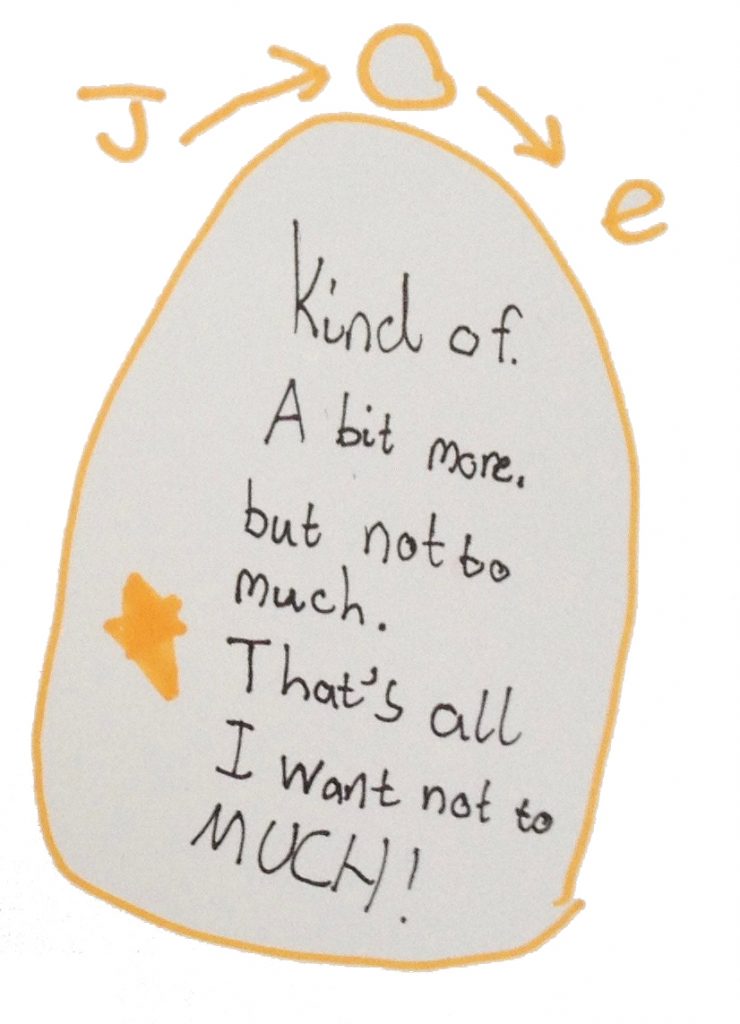 J → O → e
Kind of.
A bit more.
but not to
much.
That's all
I want not to
MUCH!